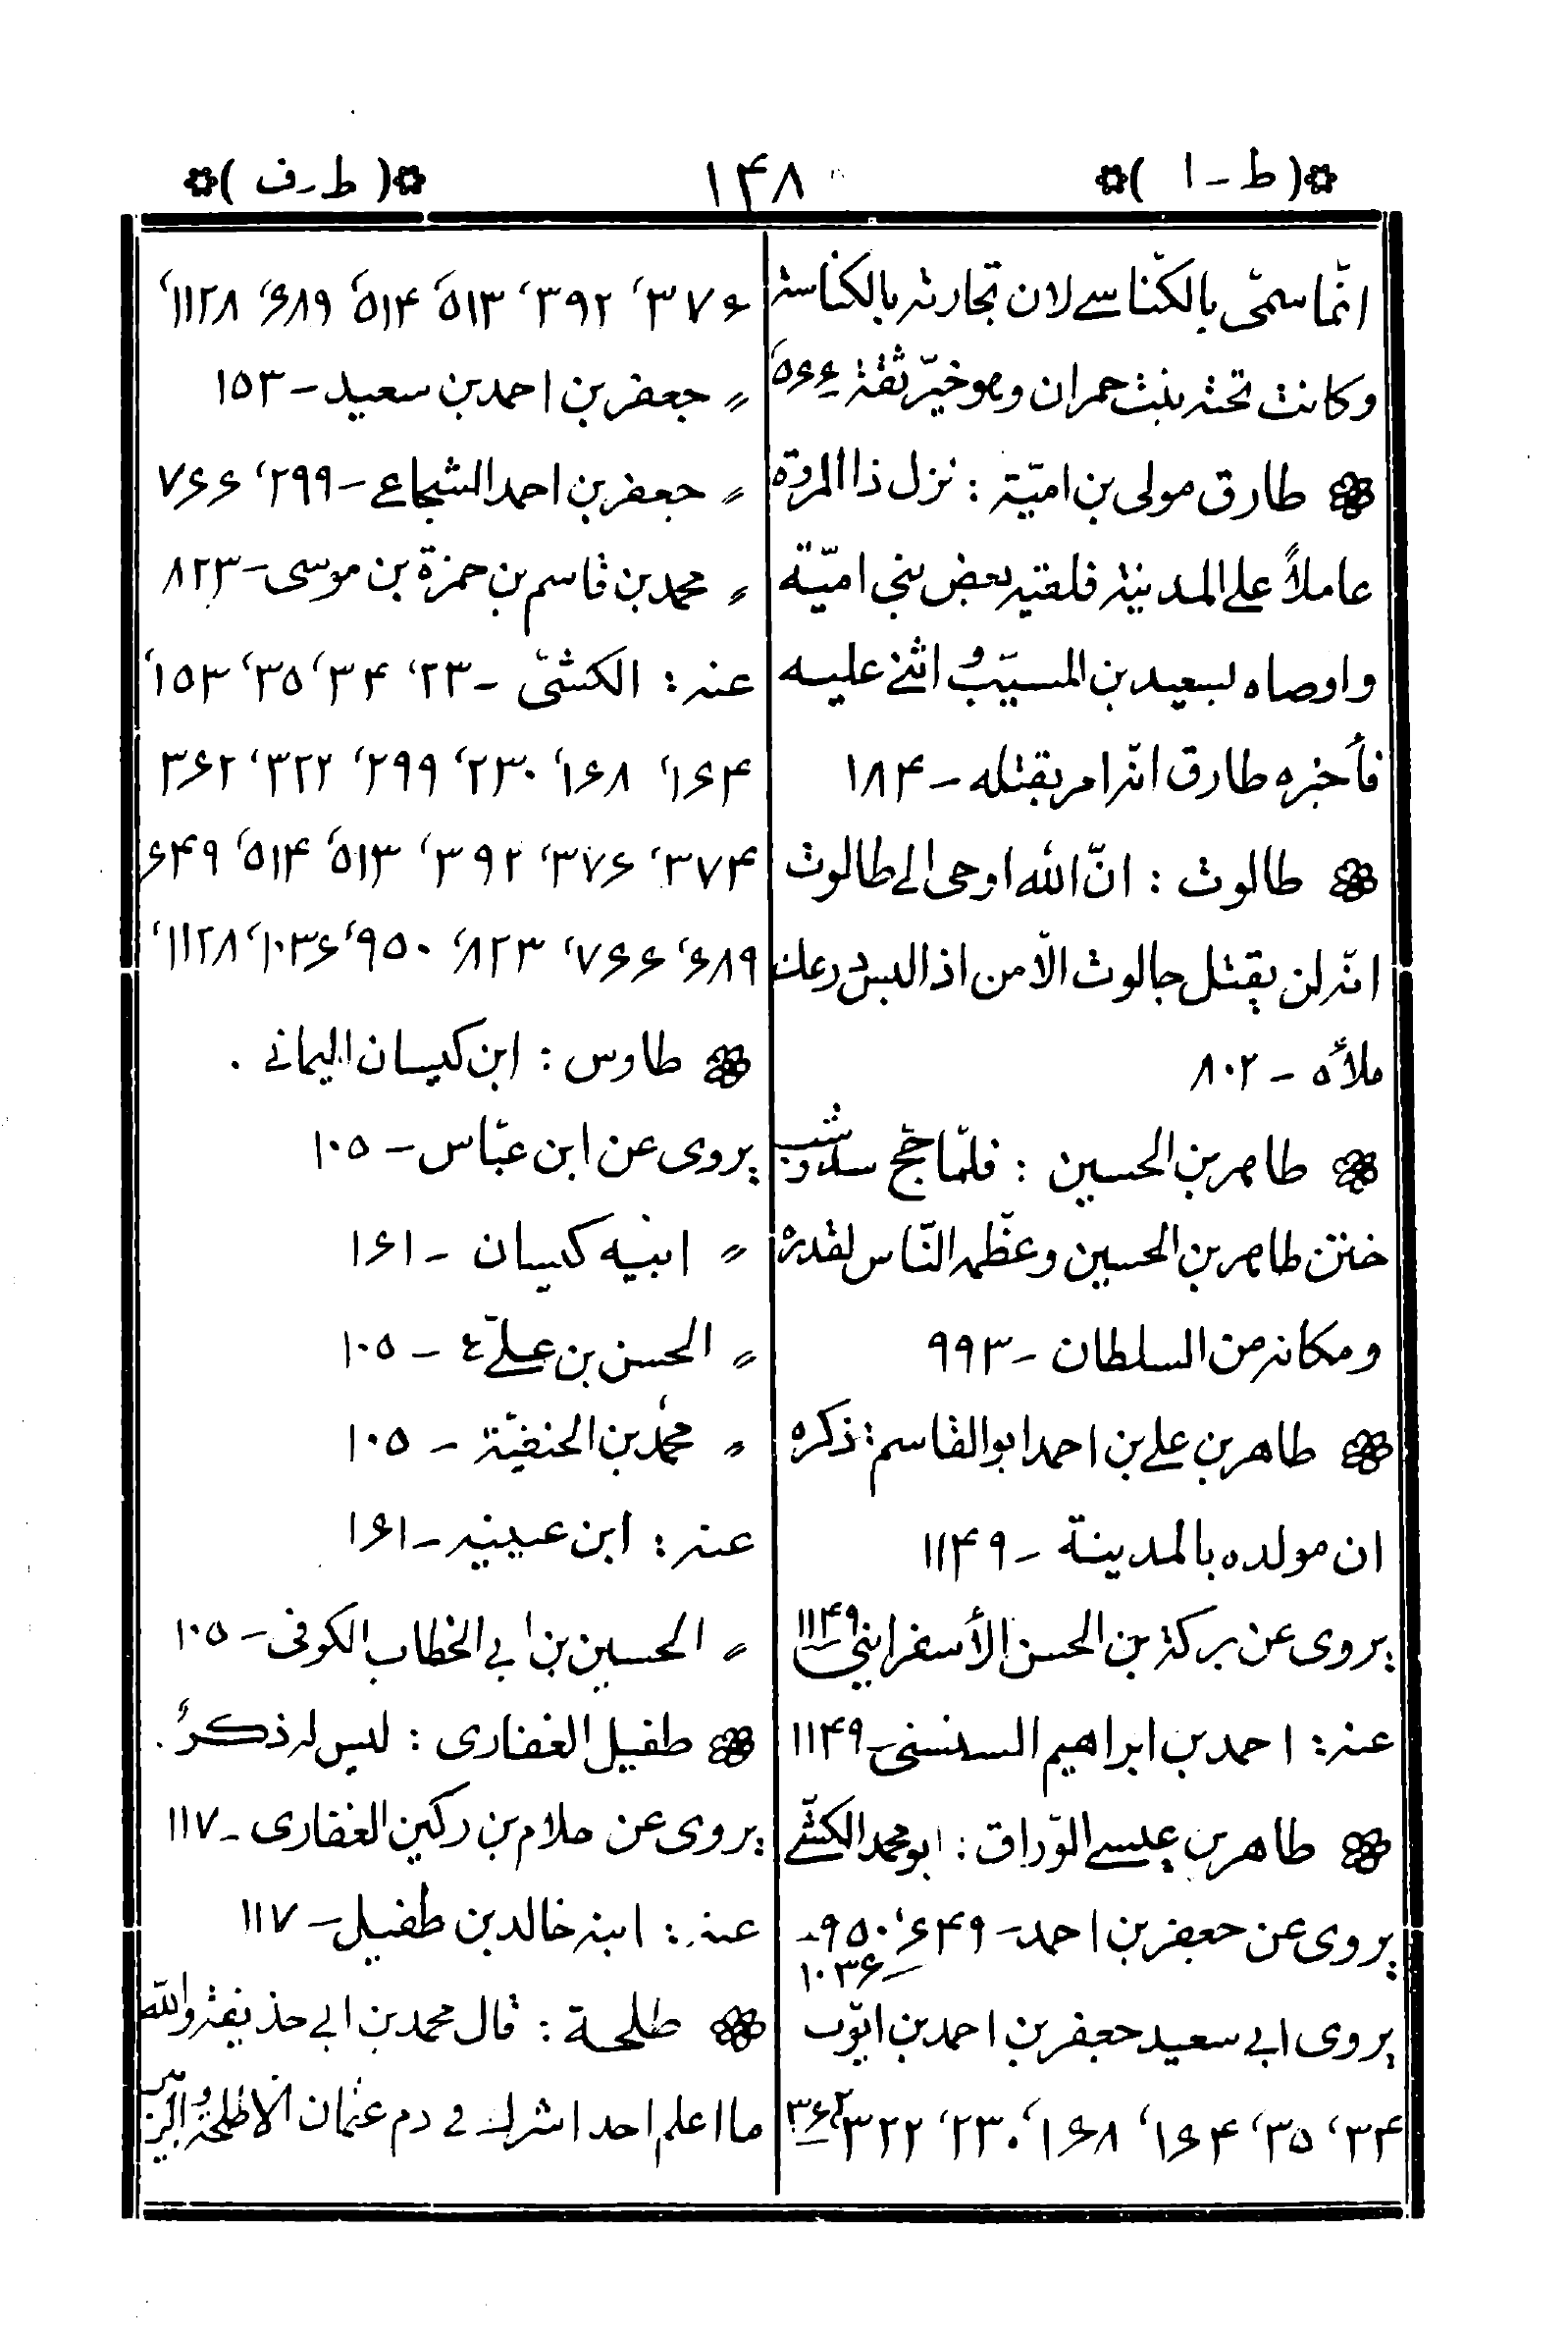 ❁( ط - ا )❁
۱۴۸
❁( ط - ف )❁
انّما سمّى بالكنّاسے لان تجارته بالكناسة
وكانت تحته بنت حمران وهو خيّر ثقة - ۵۶۶
❁ طارق مولى بن اميّة : نزل ذا المروة
عاملاً على المدينة فلقيه بعض بنى اميّة
واوصاه لسعيد بن المسيّب و اثنى عليه
فأخبره طارق انّه امر بقتله - ۱۸۴
❁ طالوت : انّ الله اوحى الى طالوت
انه لن يقتل جالوت الّا من اذا لبس درعك
ملأه - ۸۰۲
❁ طاهر بن الحسين : فلمّا حجّ
ختن طاهر بن الحسين وعظّمه النّاس لقدره
ومكانه من السلطان - ۹۹۳
❁ طاهر بن على بن احمد ابو القاسم : ذكره
ان مولده بالمدينة - ۱۱۴۹
يروى عن بركة بن الحسن الأسفراينى ۱۱۴۹
عنه : احمد بن ابراهيم السنسنى - ۱۱۴۹
❁ طاهر بن عيسے الورّاق : ابو محمد الكشّے
يروى عن جعفر بن احمد - ۶۴۹، ۹۵۰ -
۱۰۳۶ -
يروى ابى سعيد جعفر بن احمد بن ايّوب
۳۴، ۳۵، ۱۶۴، ۱۶۸، ۲۳۰، ۳۲۲، ۳۶۲
۳۷۶، ۳۹۲، ۵۱۳، ۵۱۴، ۶۸۹، ۱۱۲۸،
〃 جعفر بن احمد بن سعيد - ۱۵۳
〃 جعفر بن احمد الشجاعى - ۲۹۹، ۷۶۶
〃 محمد بن قاسم بن حمزة بن موسى - ۸۲۳
عنه : الكشّى - ۲۳، ۳۴، ۳۵، ۱۵۳،
۱۶۴، ۱۶۸، ۲۳۰، ۲۹۹، ۳۲۲، ۳۶۲
۳۷۴، ۳۷۶، ۳۹۲، ۵۱۳، ۵۱۴، ۶۴۹
۶۸۹، ۷۶۶، ۸۲۳، ۹۵۰، ۱۰۳۶، ۱۱۲۸،
❁ طاوس : ابن كيسان اليمانى .
يروى عن ابن عبّاس - ۱۰۵
〃 ابنيه كيسان - ۱۶۱
〃 الحسن بن علىّ ع - ۱۰۵
〃 محمّد بن الحنفيّة - ۱۰۵
عنه : ابن عيينه - ۱۶۱
〃 الحسين بن ابى الخطاب الكوفى - ۱۰۵
❁ طفيل الغفارى : ليس له ذكرٌ .
يروى عن حلام بن ركين الغفارى - ۱۱۷
عنه : ابنه خالد بن طفيل - ۱۱۷
❁ طلحة : قال محمد بن ابى حذيفة والله
ما اعلم احد اشرك فى دم عثمان الا طلحة والزبير